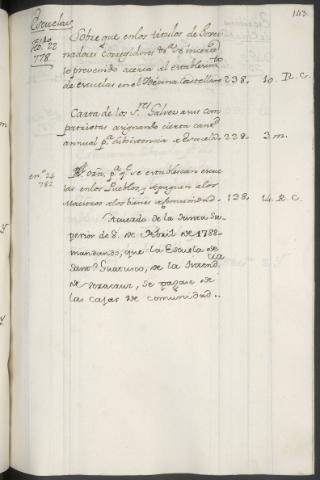 143.
Escuelas
Sobre que en los titulos de Gover
nadores corregidores &c. se inserte
lo prevenido acerca el establecim.to
de escuelas en el Idioma Castellano 238. 10. R. C.
778.
Carta de los S.res Galvez a sus com
patriotas asignando cierta cant.d
annual p.a subsistencia de Escuela 228. 3 m.
en.o 24
782
R.l orñ. p.a q.e se establescan escue
las en los Pueblos, y paguen a los
Maestros de los bienes de Comunidad. 138. 14. R. C.
Acuerdo de la Junta Su
perior de 8. de Abril de 1788
mandando, que la Escuela de
Sant.o Guatusco, de la Intend.cia
de Veracruz, se pague de
las cajas de comunidad..